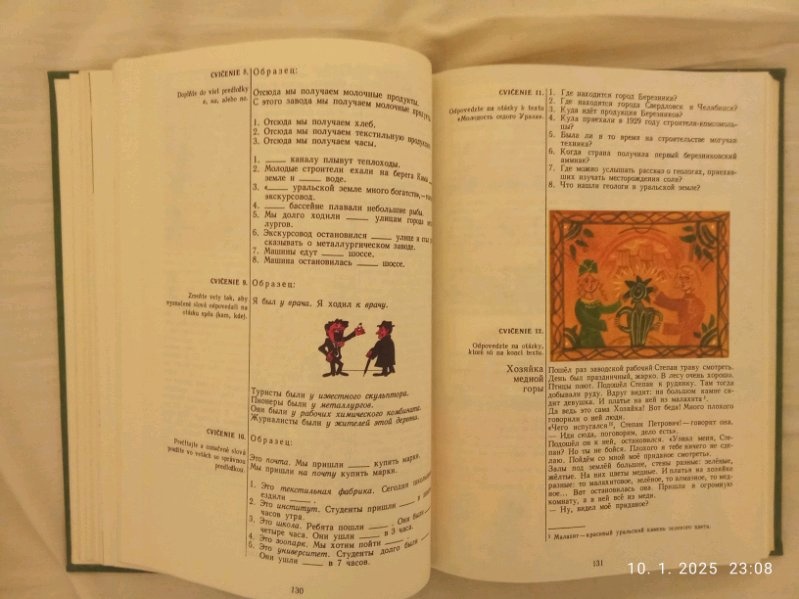 CVIČENIE 8.
Doplňte do viet predložky
в, на, alebo по.
Образец:
Отсюда мы получаем молочные продукты.
С этого завода мы получаем молочные
1. Отсюда мы получаем хлеб.
2. Отсюда мы получаем текстильную продукцию.
3. Отсюда мы получаем часы.
1. ____ каналу плывут теплоходы.
2. Молодые строители ехали на берега Камы ____
земле и ____ воде.
3. «____ уральской земле много богатств», —
экскурсовод.
4. ____ бассейне плавали небольшие рыбы.
5. Мы долго ходили ____ улицам города
лургов.
6. Экскурсовод остановился ____ улице и
сказывать о металлургическом заводе.
7. Машины едут ____ шоссе.
8. Машина остановилась ____ шоссе.
CVIČENIE 9.
Zmeňte vety tak, aby
vyznačené slová odpovedali na
otázku куда (kam, kde).
Образец:
Я был у врача. Я ходил к врачу.
Туристы были у известного скульптора.
Пионеры были у металлургов.
Они были у рабочих химического комбината.
Журналисты были у жителей этой деревни.
CVIČENIE 10.
Prečítajte a označené slová
použite vo vetách so správnou
predložkou.
Образец:
Это почта. Мы пришли ____ купить марки.
Мы пришли на почту купить марки.
1. Это текстильная фабрика. Сегодня
ездили ____.
2. Это институт. Студенты пришли ____ в
часов утра.
3. Это школа. Ребята пошли ____. Они были ____
четыре часа. Они ушли ____ в 3 часа.
4. Это зоопарк. Мы хотим пойти ____.
5. Это университет. Студенты долго были ____.
Они ушли ____ в 7 часов.
130
CVIČENIE 11.
Odpovedzte na otázky k textu
«Молодость седого Урала».
1. Где находится город Березники?
2. Где находится города Свердловск и Челябинск?
3. Куда идёт продукция Березников?
4. Куда приехали в 1929 году строители-комсомоль-
цы?
5. Была ли в то время на строительстве могучая
техника?
6. Когда страна получила первый березниковский
аммиак?
7. Где можно услышать рассказ о геологах, приехав-
ших изучать месторождения соли?
8. Что нашли геологи в уральской земле?
CVIČENIE 12.
Odpovedzte na otázky,
ktoré sú na konci textu.
Хозяйка
медной
горы
Пошёл раз заводской рабочий Степан траву смотреть.
День был праздничный, жарко. В лесу очень хорошо.
Птицы поют. Подошёл Степан к руднику. Там тогда
добывали руду. Вдруг видит: на большом камне си-
дит девушка. И платье на ней из малахита¹.
Да ведь это сама Хозяйка! Вот беда! Много плохого
говорили о ней люди.
«Чего испугался, Степан Петрович!— говорит она.
— Иди сюда, поговорим, дело есть».
Подошёл он к ней, остановился. «Узнал меня, Сте-
пан? Но ты не бойся. Плохого я тебе ничего не сде-
лаю. Пойдём со мной моё приданое смотреть».
Залы под землёй большие, стены разные: зелёные,
жёлтые. На них цветы медные. И платья на хозяйке
разные: то малахитовое, зелёное, то алмазное, то мед-
вое... Вот остановилась она. Пришли в огромную
комнату, а в ней всё из меди.
— Ну, видел моё приданое?
¹ Малахит—красивый уральский камень зелёного цвета.
131
10. 1. 2025 23:08